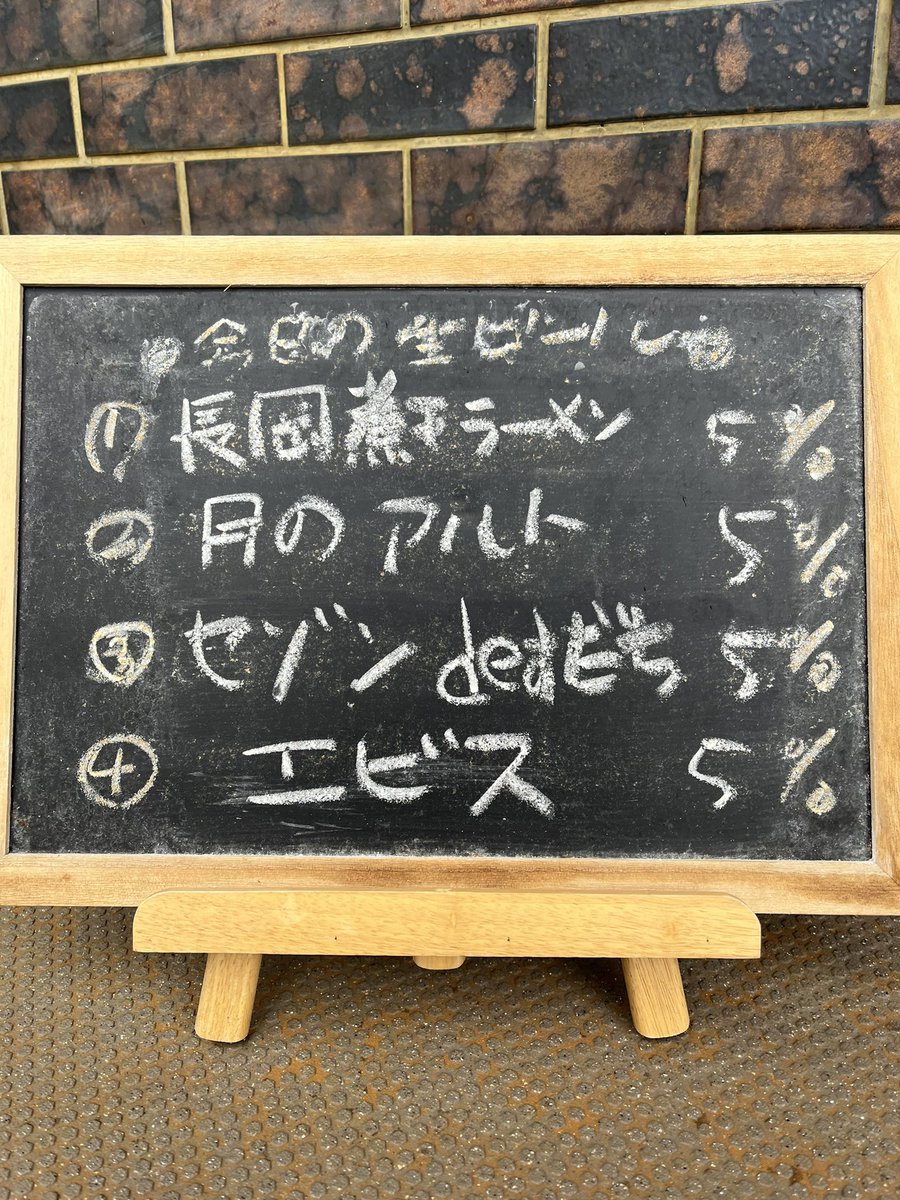 今日の生ビール
① 長岡煮玉ラーメン 5%
② 月のアルト 5%
③ セゾンdeはビち 5%
④ エビス 5%